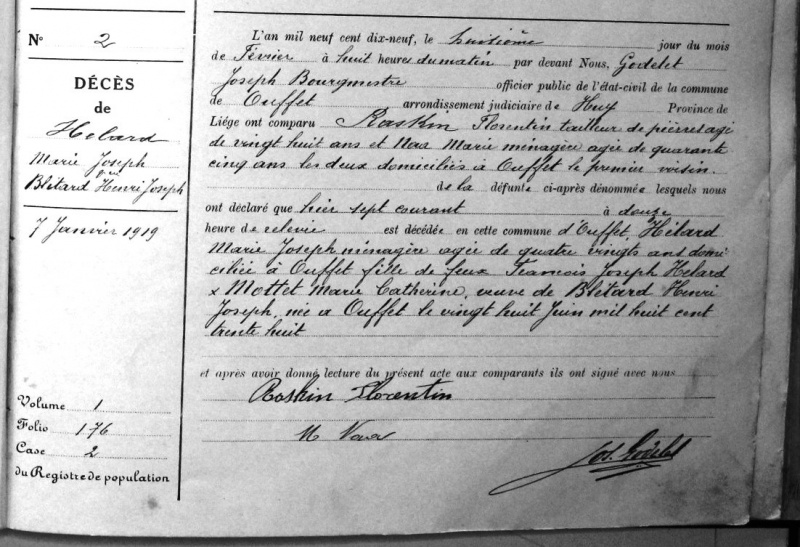 N° 2
DÉCÈS
de
Hélard
Marie Joseph
Blétard Henri Joseph
7 Janvier 1919
Volume 1
Folio 176
Case 2
du Registre de population
L'an mil neuf cent dix-neuf, le huitième jour du mois
de Février à huit heures du matin par devant Nous, Godelet
Joseph Bourgmestre officier public de l'état-civil de la commune
de Ouffet arrondissement judiciaire de Huy Province de
Liége ont comparu Raskin Florentin tailleur de pierres agé
de vingt huit ans et Marie ménagère agée de quarante
cinq ans les deux domiciliés à Ouffet le premier voisin
de la défunte ci-après dénommée lesquels nous
ont déclaré que hier sept courant à douze
heure de relevée est décédée en cette commune d'Ouffet, Hélard
Marie Joseph ménagère agée de quatre vingts ans domi
ciliée à Ouffet fille de feux François Joseph Hélard
x Mottet Marie Catherine, veuve de Blétard Henri
Joseph, née a Ouffet le vingt huit Juin mil huit cent
trente huit
et après avoir donné lecture du présent acte aux comparants ils ont signé avec nous
Raskin Florentin
Jos. Godelet